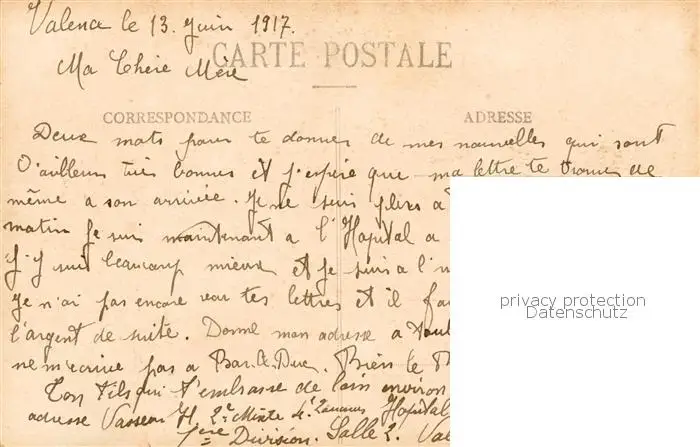 Valence le 13. Juin 1917.
CARTE POSTALE
Ma Chère Mère
CORRESPONDANCE
ADRESSE
Deux mots pour te donner de mes nouvelles qui sont
D'ailleurs très bonnes et j'espère que ma lettre te trouve de
même a son arrivée. Je ne suis plus a
matin Je suis maintenant a l'Hopital a
J'y suis beaucoup mieux et je suis a l'
Je n'ai pas encore reçu tes lettres et il
privacy protection
Datenschutz
l'argent de suite. Donne mon adresse a
ne m'écrive pas a Bar-le-Duc. Bien le
Ton fils qui t'embrasse de loin environ
adresse Vasseur H. 2e Mixte 4e Zouaves Hopital
1ère Division. Salle 2.